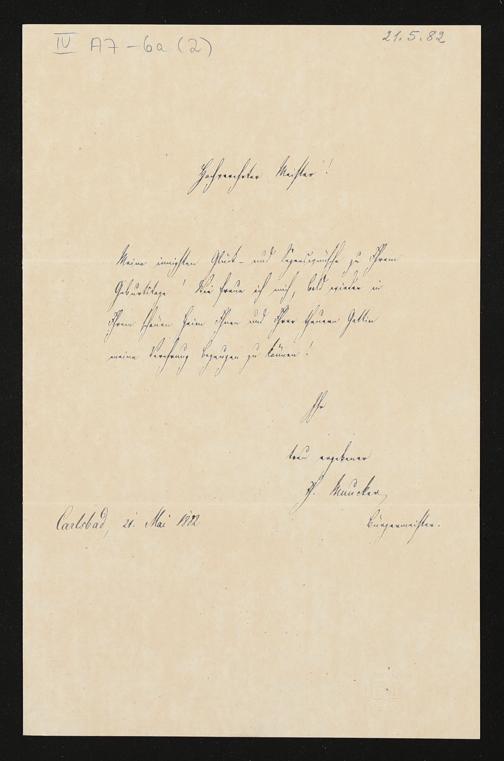 IV A7-6a (2)
21.5.82
Hochverehrter Meister!
Meine innigsten Glück- und Segenswünsche zu Ihrem
Geburtstage! Wie freue ich mich, bald wieder in
Ihrem schönen Heim Ihnen und Ihrer theuren Gattin
meine Verehrung bezeugen zu können!
Ihr
treu ergebener
Muncker,
Bürgermeister.
Carlsbad, 21. Mai 1882